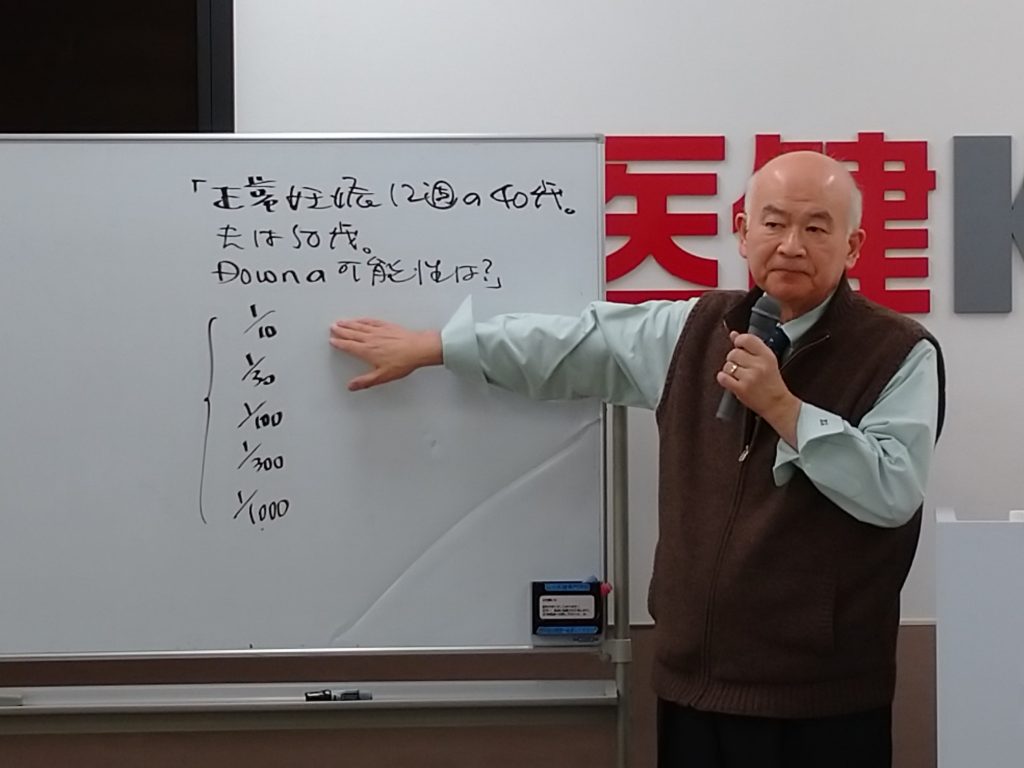 「正常妊娠12週の40代。
夫は50代。
Downの可能性は?」
1/10
1/30
1/100
1/300
1/1000
医健K